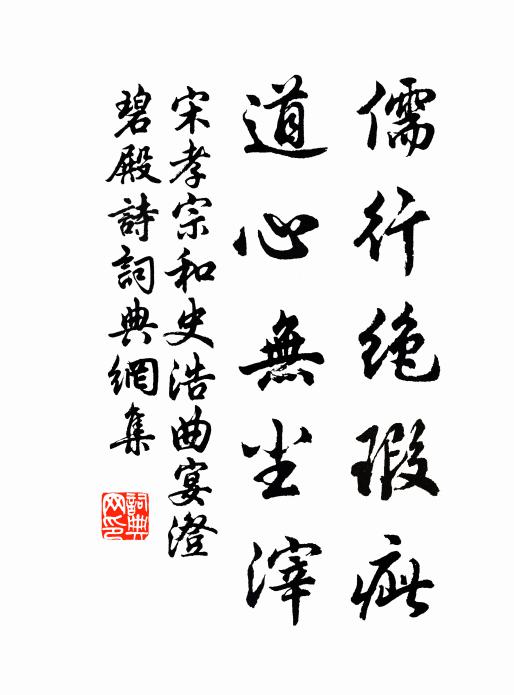 儒行绝瑕疵
道心無尘滓
宋孝宗和史浩曲宴澄
碧殿詩詞典網集
詞典网印